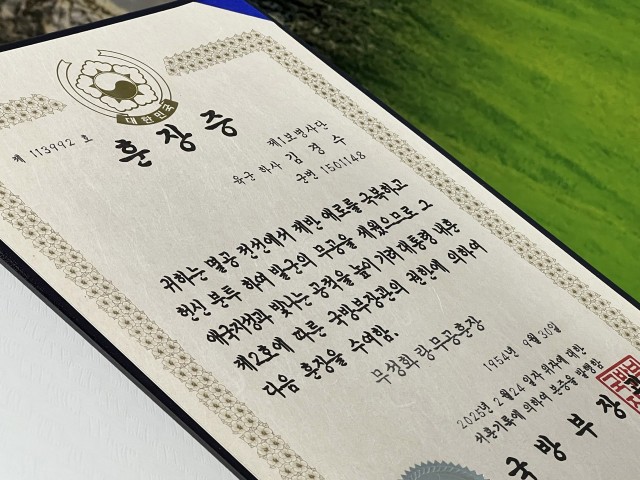 대한민국
제 113992 호
훈장증
제1보병사단
육군 하사 김 경 수
군번 1501148
귀하는 멸공 전선에서 제반 애로를 극복하고
헌신 분투 하여 발군의 무공을 세웠으므로 그
애국지성과 빛나는 공적을 높이 기려 대통령 내훈
제2호에 따른 국방부장관의 권한에 의하여
다음 훈장을 수여함.
무성화랑무공훈장
1954년 9월 30일
2025년 2월 24일 위자에 대한
서훈기록에 의하여 본증을 발행함
국방부장